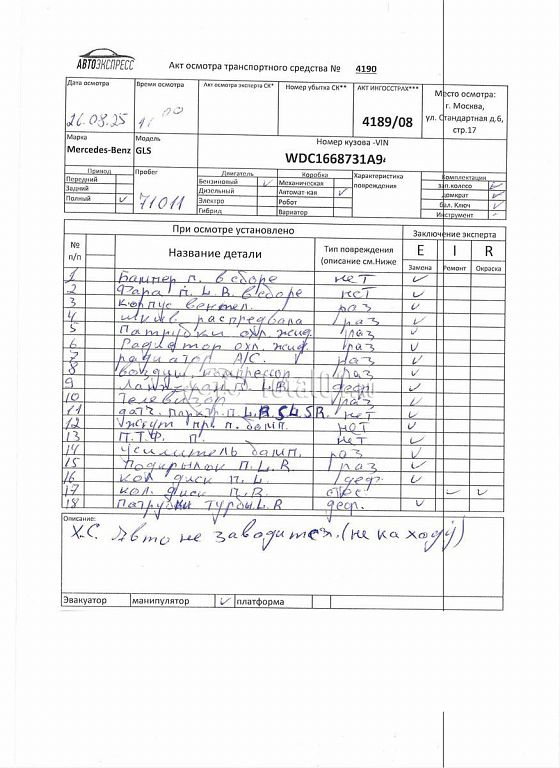 АВТОЭКСПРЕСС
Акт осмотра транспортного средства № 4190
Дата осмотра Время осмотра Акт осмотра эксперта СК* Номер убытка СК** АКТ ИНГОССТРАХ*** Место осмотра:
г. Москва,
26.08.25 11 00 4189/08 ул. Стандартная д.6,
стр.17
Марка Модель Номер кузова -VIN
Mercedes-Benz GLS WDC1668731A94
Привод Пробег Двигатель Коробка Характеристика повреждения Комплектация
Передний Бензиновый ✓ Механическая зап.колесо ✓
Задний Дизельный Автомат-кая ✓ домкрат ✓
Полный ✓ 71011 Электро Робот бал. Ключ ✓
Гибрид Вариатор Инструмент
При осмотре установлено Заключение эксперта
№ п/п Название детали Тип повреждения (описание см.Ниже E I R
Замена Ремонт Окраска
1 Бампер п. в сборе нет ✓
2 Фара п. L.R. в сборе нет ✓
3 Корпус вентел. раз ✓
4 шкив распредвала раз ✓
5 Патрубки охл. жид. раз ✓
6 Радиатор охл. жид. раз ✓
7 радиатор A/C. раз ✓
8 раз ✓
9 L.R. деф. ✓
10 Телевизор раз ✓
11 дат. паркт. п L.R. SL.SR. нет ✓
12 Жгут пр. п. бамп. нет ✓
13 П.Т.Ф. п. нет ✓
14 усилитель бамп. раз ✓
15 Подкрылок п. L.R. раз ✓
16 кол диск п. L. деф. ✓
17 кол. диск п. R. ✓ ✓
18 Патрубки турбы L.R деф. ✓
Описание:
Х.С. Авто не заводится. (не на ходу)
Эвакуатор манипулятор ✓ платформа